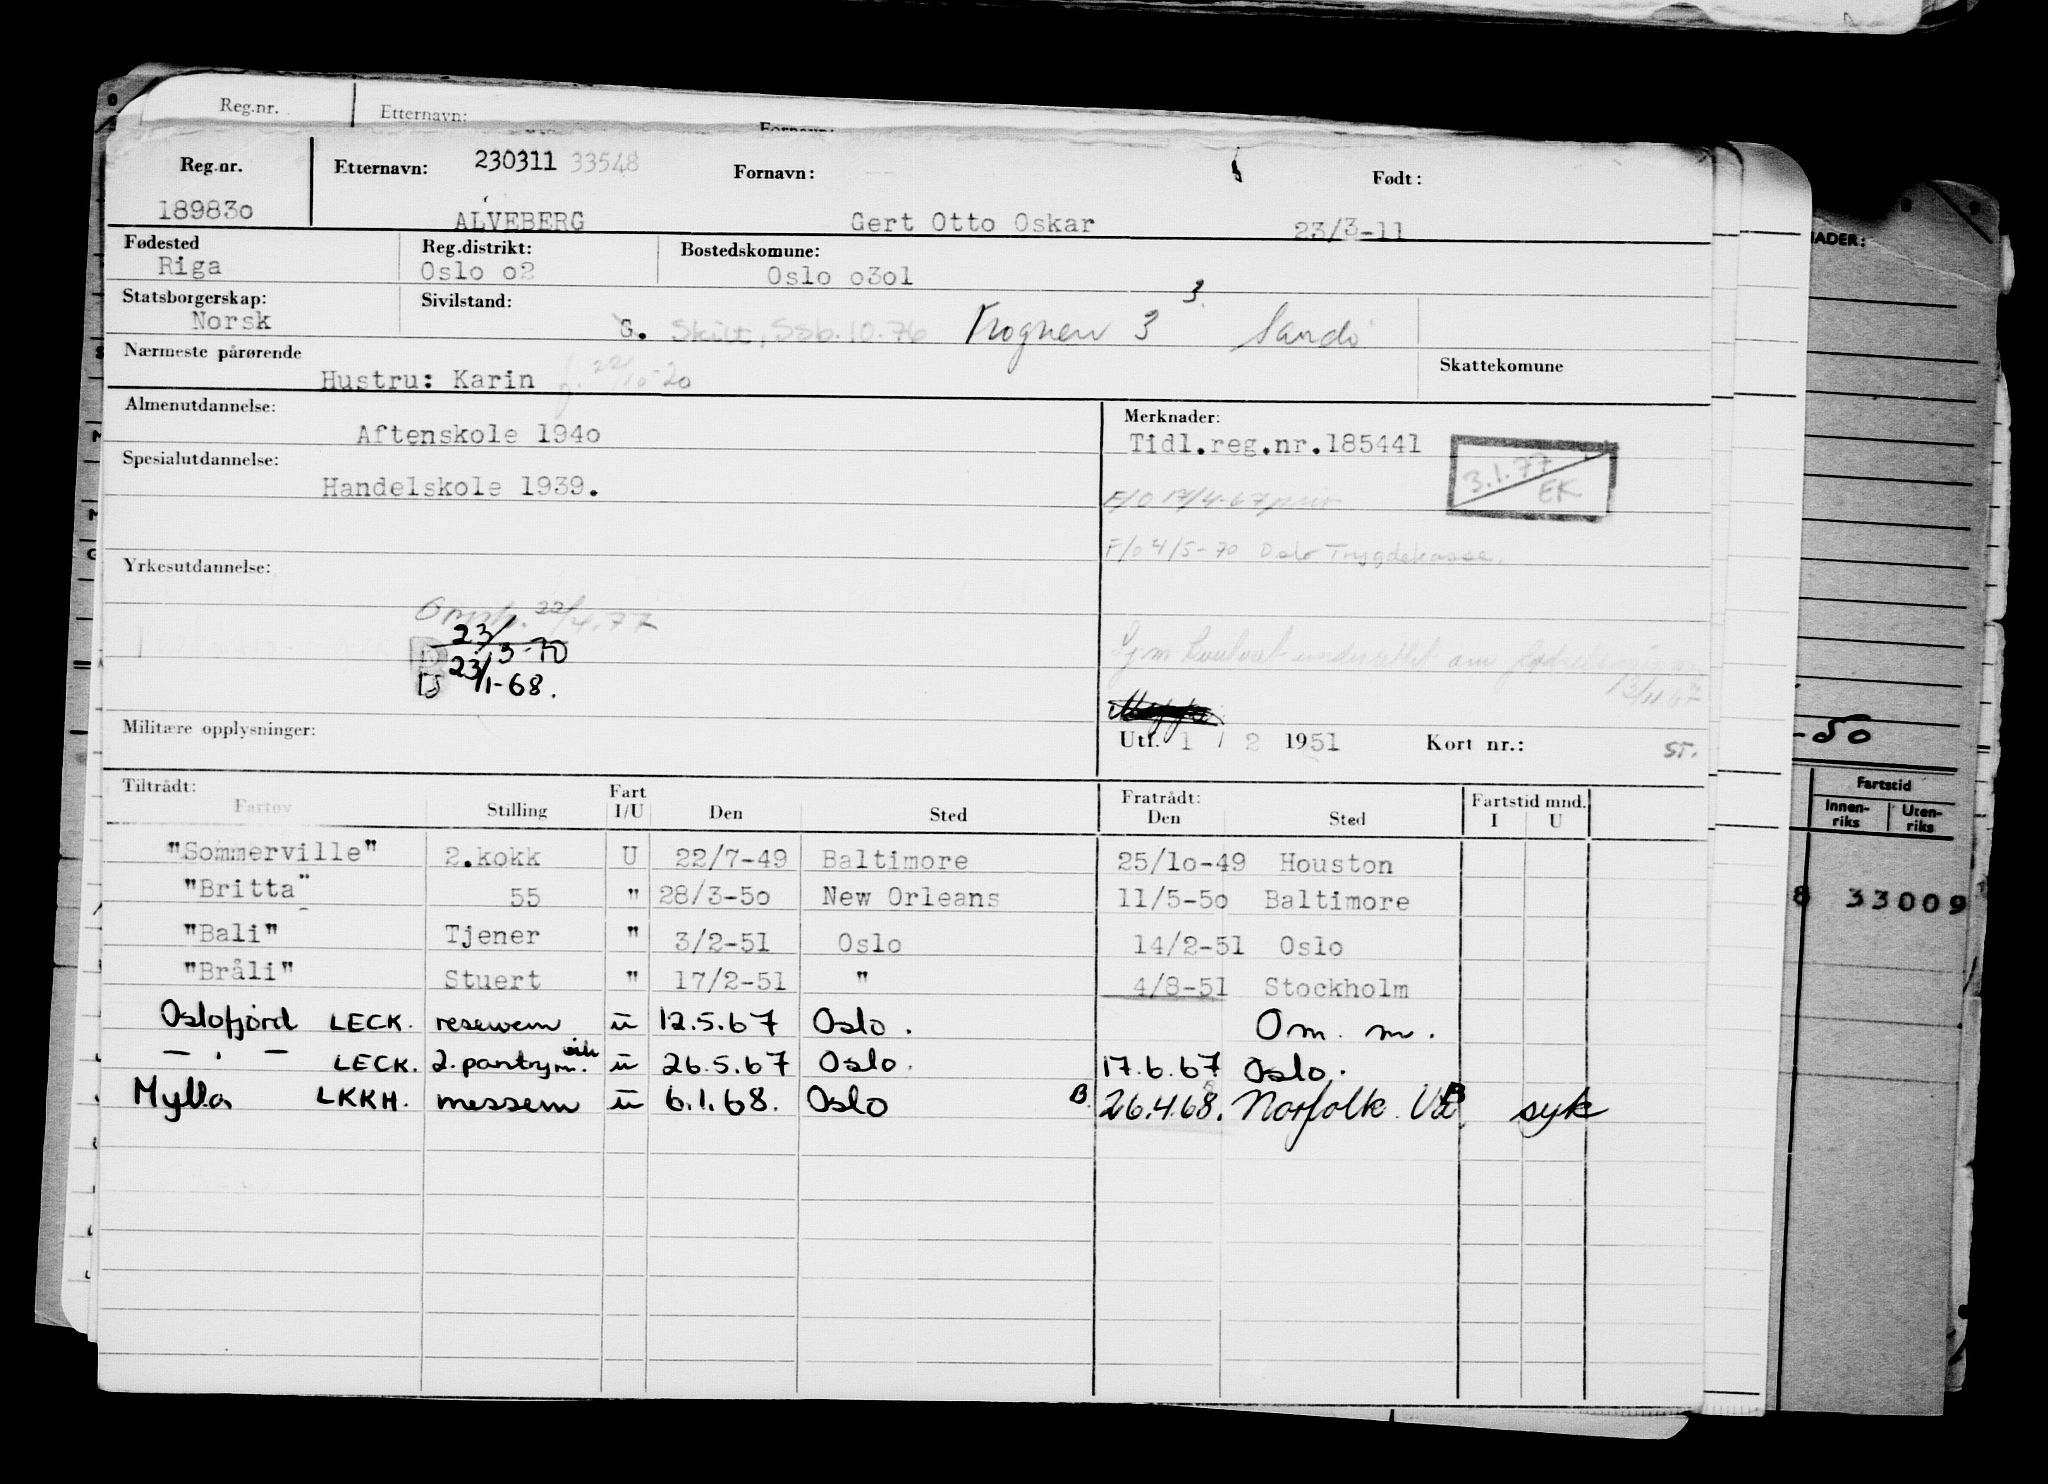 Reg.nr. Etternavn:
Reg.nr. Etternavn: 230311 33548 Fornavn: Født:
189830 ALVEBERG Gert Otto Oskar 23/3-11
Fødested Reg.distrikt: Bostedskomune:
Riga Oslo o2 Oslo o3o1
Statsborgerskap: Sivilstand:
Norsk G. Skilt, Ssb.10.76 3
Nærmeste pårørende Skattekomune
Hustru: Karin f. 22/10-20
Almenutdannelse: Merknader:
Aftenskole 194o Tidl.reg.nr.185441
Spesialutdannelse: 3.1.77 EK
Handelskole 1939.
F/o 17/4-67
F/o 4/5-70 Oslo Trygdekasse.
Yrkesutdannelse:
22/4.77
23/3-70
23/1-68.
13/11 67
Militære opplysninger: Utf. 1 / 2 1951 Kort nr.: ST.
Tiltrådt: Fartøy Stilling Fart I/U Den Sted Fratrådt: Den Sted Fartstid mnd. I U
"Sommerville" 2.kokk U 22/7-49 Baltimore 25/1o-49 Houston
"Britta" 55 " 28/3-5o New Orleans 11/5-5o Baltimore
"Bali" Tjener " 3/2-51 Oslo 14/2-51 Oslo
"Bråli" Stuert " 17/2-51 " 4/8-51 Stockholm
Oslofjord LECK. resevem u 12.5.67 Oslo. Om. m.
— " — LECK. 2. pantrym. u 26.5.67 Oslo. 17.6.67 Oslo.
Mylla LKKH. messem u 6.1.68. Oslo B. 26.4.68. Norfolk Va B syk
NADER:
-50
Fartstid
Innen-riks Uten-riks
8 33009